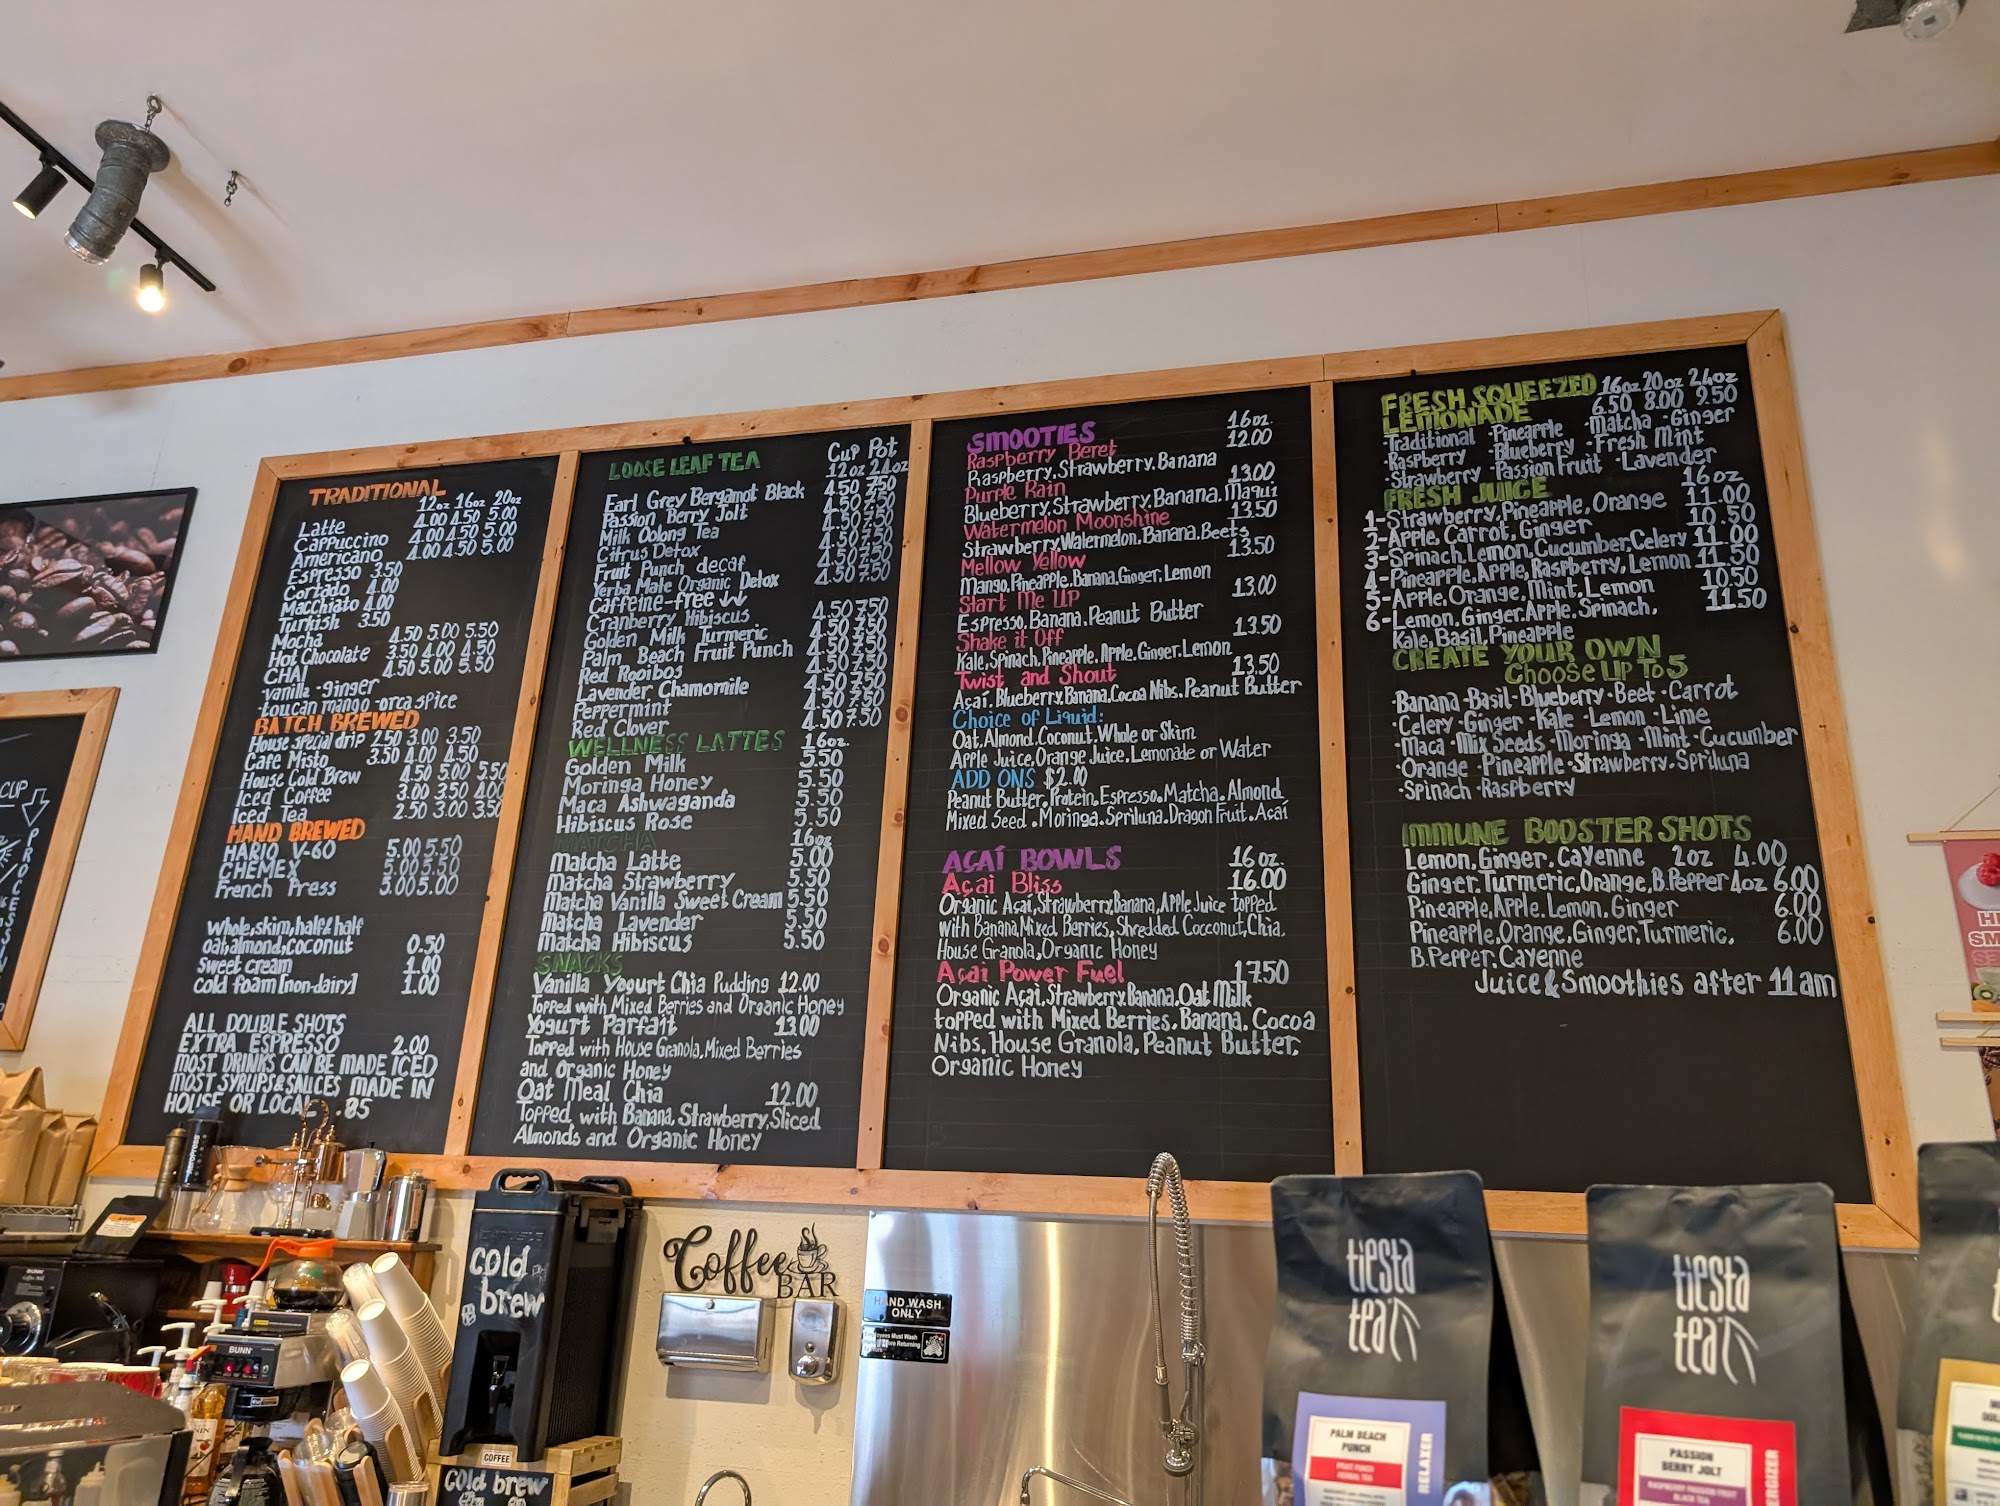 TRADITIONAL
12oz 16oz 20oz
Latte 4.00 4.50 5.00
Cappuccino 4.00 4.50 5.00
Americano 4.00 4.50 5.00
Espresso 3.50
Cortado 4.00
Macchiato 4.00
Turkish 3.50
Mocha 4.50 5.00 5.50
Hot Chocolate 3.50 4.00 4.50
CHAI 4.50 5.00 5.50
·vanilla ·ginger
·toucan mango ·orca spice
BATCH BREWED
House special drip 2.50 3.00 3.50
Cafe Misto 3.50 4.00 4.50
House Cold Brew 4.50 5.00 5.50
Iced Coffee 3.00 3.50 4.00
Iced Tea 2.50 3.00 3.50
HAND BREWED
HARIO V-60 5.00 5.50
CHEMEX 5.00 5.50
French Press 5.00 5.00
Whole,skim,half&half
oat,almond,coconut 0.50
Sweet cream 1.00
cold foam [non-dairy] 1.00
ALL DOUBLE SHOTS
EXTRA ESPRESSO 2.00
MOST DRINKS CAN BE MADE ICED
MOST SYRUPS&SAUCES MADE IN
HOUSE OR LOCAL .85
LOOSE LEAF TEA Cup Pot
12oz 24oz
Earl Grey Bergamot Black 4.50 7.50
Passion Berry Jolt 4.50 7.50
Milk Oolong Tea 4.50 7.50
Citrus Detox 4.50 7.50
Fruit Punch decaf 4.50 7.50
Yerba Mate Organic Detox 4.50 7.50
Caffeine-free ↓↓
Cranberry Hibiscus 4.50 7.50
Golden Milk Turmeric 4.50 7.50
Palm Beach Fruit Punch 4.50 7.50
Red Rooibos 4.50 7.50
Lavender Chamomile 4.50 7.50
Peppermint 4.50 7.50
Red Clover 4.50 7.50
WELLNESS LATTES 16oz.
Golden Milk 5.50
Moringa Honey 5.50
Maca Ashwaganda 5.50
Hibiscus Rose 5.50
MATCHA 16oz
Matcha Latte 5.00
Matcha Strawberry 5.50
Matcha Vanilla Sweet Cream 5.50
Matcha Lavender 5.50
Matcha Hibiscus 5.50
SNACKS
Vanilla Yogurt Chia Pudding 12.00
Topped with Mixed Berries and Organic Honey
Yogurt Parfait 13.00
Topped with House Granola,Mixed Berries
and Organic Honey
Oat Meal Chia 12.00
Topped with Banana, Strawberry,Sliced
Almonds and Organic Honey
SMOOTIES 16oz.
Raspberry Beret 12.00
Raspberry, Strawberry, Banana
Purple Rain 13.00
Blueberry, Strawberry, Banana, Maqui
Watermelon Moonshine 13.50
Strawberry,Watermelon,Banana,Beets
Mellow Yellow 13.50
Mango,Pineapple,Banana,Ginger,Lemon
Start Me UP 13.00
Espresso, Banana, Peanut Butter
Shake it Off 13.50
Kale,Spinach,Pineapple,Apple,Ginger,Lemon
Twist and Shout 13.50
Açaí, Blueberry,Banana,Cocoa Nibs, Peanut Butter
Choice of Liquid:
Oat,Almond,Coconut,Whole or Skim
Apple Juice,Orange Juice, Lemonade or Water
ADD ONS $2.00
Peanut Butter, Protein, Espresso, Matcha, Almond
Mixed Seed . Moringa . Spriluna. Dragon Fruit . Açaí
AÇAÍ BOWLS 16oz.
Açai Bliss 16.00
Organic Açaí,Strawberry,Banana,Apple Juice topped
with Banana,Mixed Berries, Shredded Cocconut,Chia,
House Granola,Organic Honey
Açai Power Fuel 17.50
Organic Açaí, Strawberry,Banana,Oat Milk
topped with Mixed Berries, Banana, Cocoa
Nibs, House Granola, Peanut Butter,
Organic Honey
FRESH SQUEEZED 16oz 20oz 24oz
LEMONADE 6.50 8.00 9.50
·Traditional ·Pineapple ·Matcha ·Ginger
·Raspberry ·Blueberry ·Fresh Mint
·Strawberry ·Passion Fruit ·Lavender
FRESH JUICE 16oz
1-Strawberry, Pineapple, Orange 11.00
2-Apple, Carrot, Ginger 10.50
3-Spinach,Lemon,Cucumber,Celery 11.00
4-Pineapple,Apple, Raspberry, Lemon 11.50
5-Apple, Orange, Mint, Lemon 10.50
6-Lemon, Ginger,Apple, Spinach, 11.50
Kale, Basil, Pineapple
CREATE YOUR OWN
Choose UP To 5
·Banana ·Basil ·Blueberry ·Beet ·Carrot
·Celery ·Ginger ·Kale ·Lemon ·Lime
·Maca ·Mix Seeds ·Moringa ·Mint ·Cucumber
·Orange ·Pineapple ·Strawberry ·Spriluna
·Spinach ·Raspberry
IMMUNE BOOSTER SHOTS
Lemon, Ginger, Cayenne 2oz 4.00
Ginger,Turmeric,Orange,B.Pepper 4oz 6.00
Pineapple,Apple, Lemon, Ginger 6.00
Pineapple,Orange,Ginger,Turmeric, 6.00
B.Pepper, Cayenne
Juice&Smoothies after 11am
CUP
cold
brew
Coffee
BAR
HAND WASH
ONLY
Employees Must Wash
COFFEE
Cold brew
BUNN
BUNN
tiesta
tea
PALM BEACH
PUNCH
FRUIT PUNCH
HERBAL TEA
RELAXER
tiesta
tea
PASSION
BERRY JOLT
RASPBERRY PASSION FRUIT
BLACK TEA